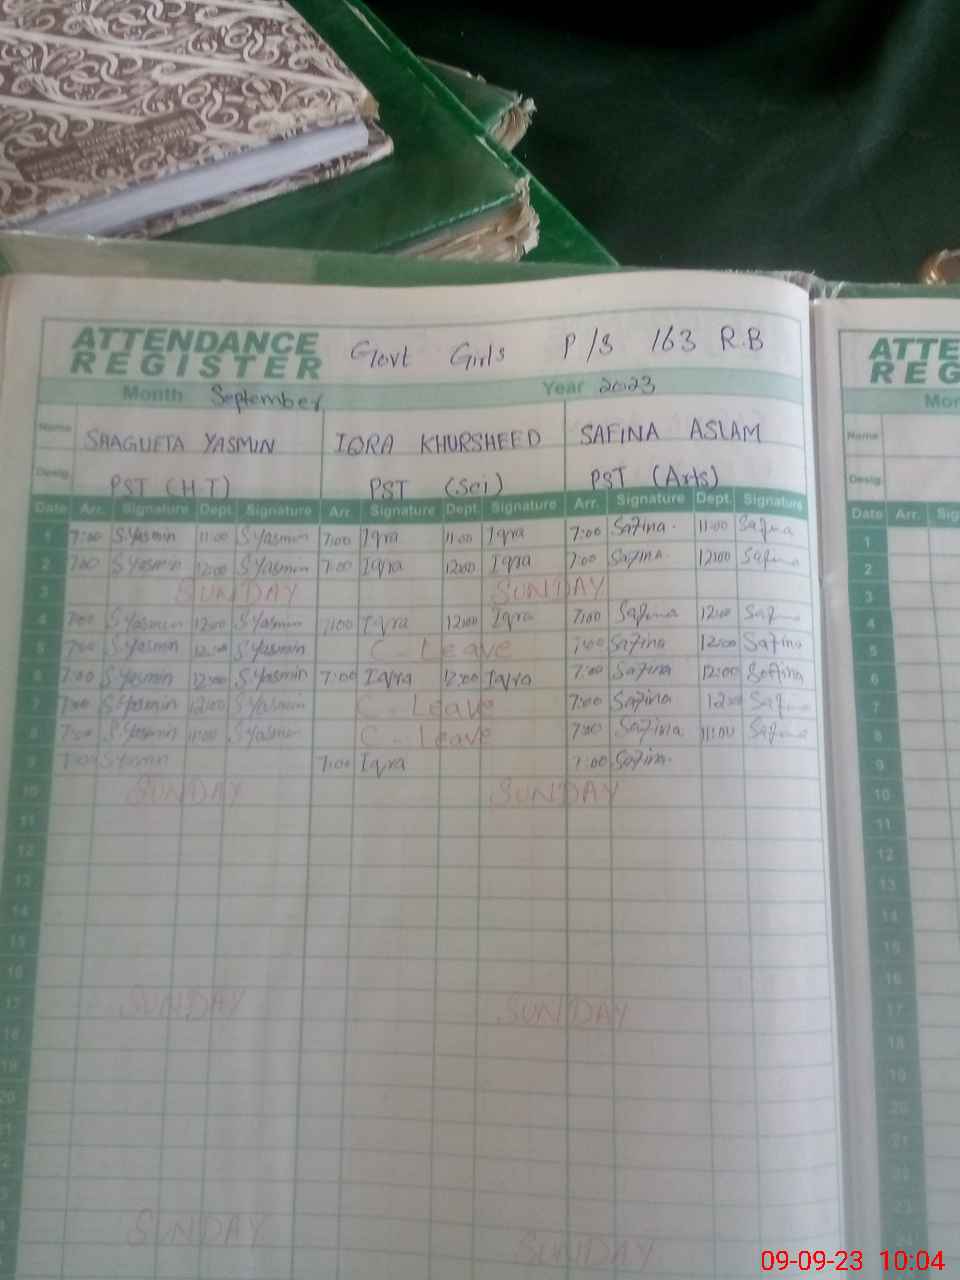 ATTENDANCE REGISTER Govt Girls P/S 163 R.B
Month September Year 2023
Name SHAGUFTA YASMIN IQRA KHURSHEED SAFINA ASLAM
Desig. PST (H.T) PST (Sci) PST (Arts)
Date Arr. Signature Dept. Signature Arr. Signature Dept. Signature Arr. Signature Dept. Signature
1 7:00 S.Yasmin 11:00 S.Yasmin 7:00 Iqra 11:00 Iqra 7:00 Safina 11:00 Safina
2 7:00 S.Yasmin 12:00 S.Yasmin 7:00 Iqra 12:00 Iqra 7:00 Safina 12:00 Safina
3 SUNDAY SUNDAY
4 7:00 S.Yasmin 12:00 S.Yasmin 7:00 Iqra 12:00 Iqra 7:00 Safina 12:00 Safina
5 7:00 S.Yasmin 12:00 S.Yasmin C-Leave 7:00 Safina 12:00 Safina
6 7:00 S.Yasmin 12:00 S.Yasmin 7:00 Iqra 12:00 Iqra 7:00 Safina 12:00 Safina
7 7:00 S.Yasmin 12:00 S.Yasmin C-Leave 7:00 Safina 12:00 Safina
8 7:00 S.Yasmin 11:00 S.Yasmin C-Leave 7:00 Safina 11:00 Safina
9 7:00 S.Yasmin 7:00 Iqra 7:00 Safina
10 SUNDAY SUNDAY
11
12
13
14
15
16
17 SUNDAY SUNDAY
18
19
20
SUNDAY SUNDAY
ATTE
REG
Mon
Name
Desig.
Date Arr. Sig
1
2
3
4
5
6
7
8
9
10
11
12
13
14
15
16
17
18
19
20
21
22
23
24
09-09-23 10:04